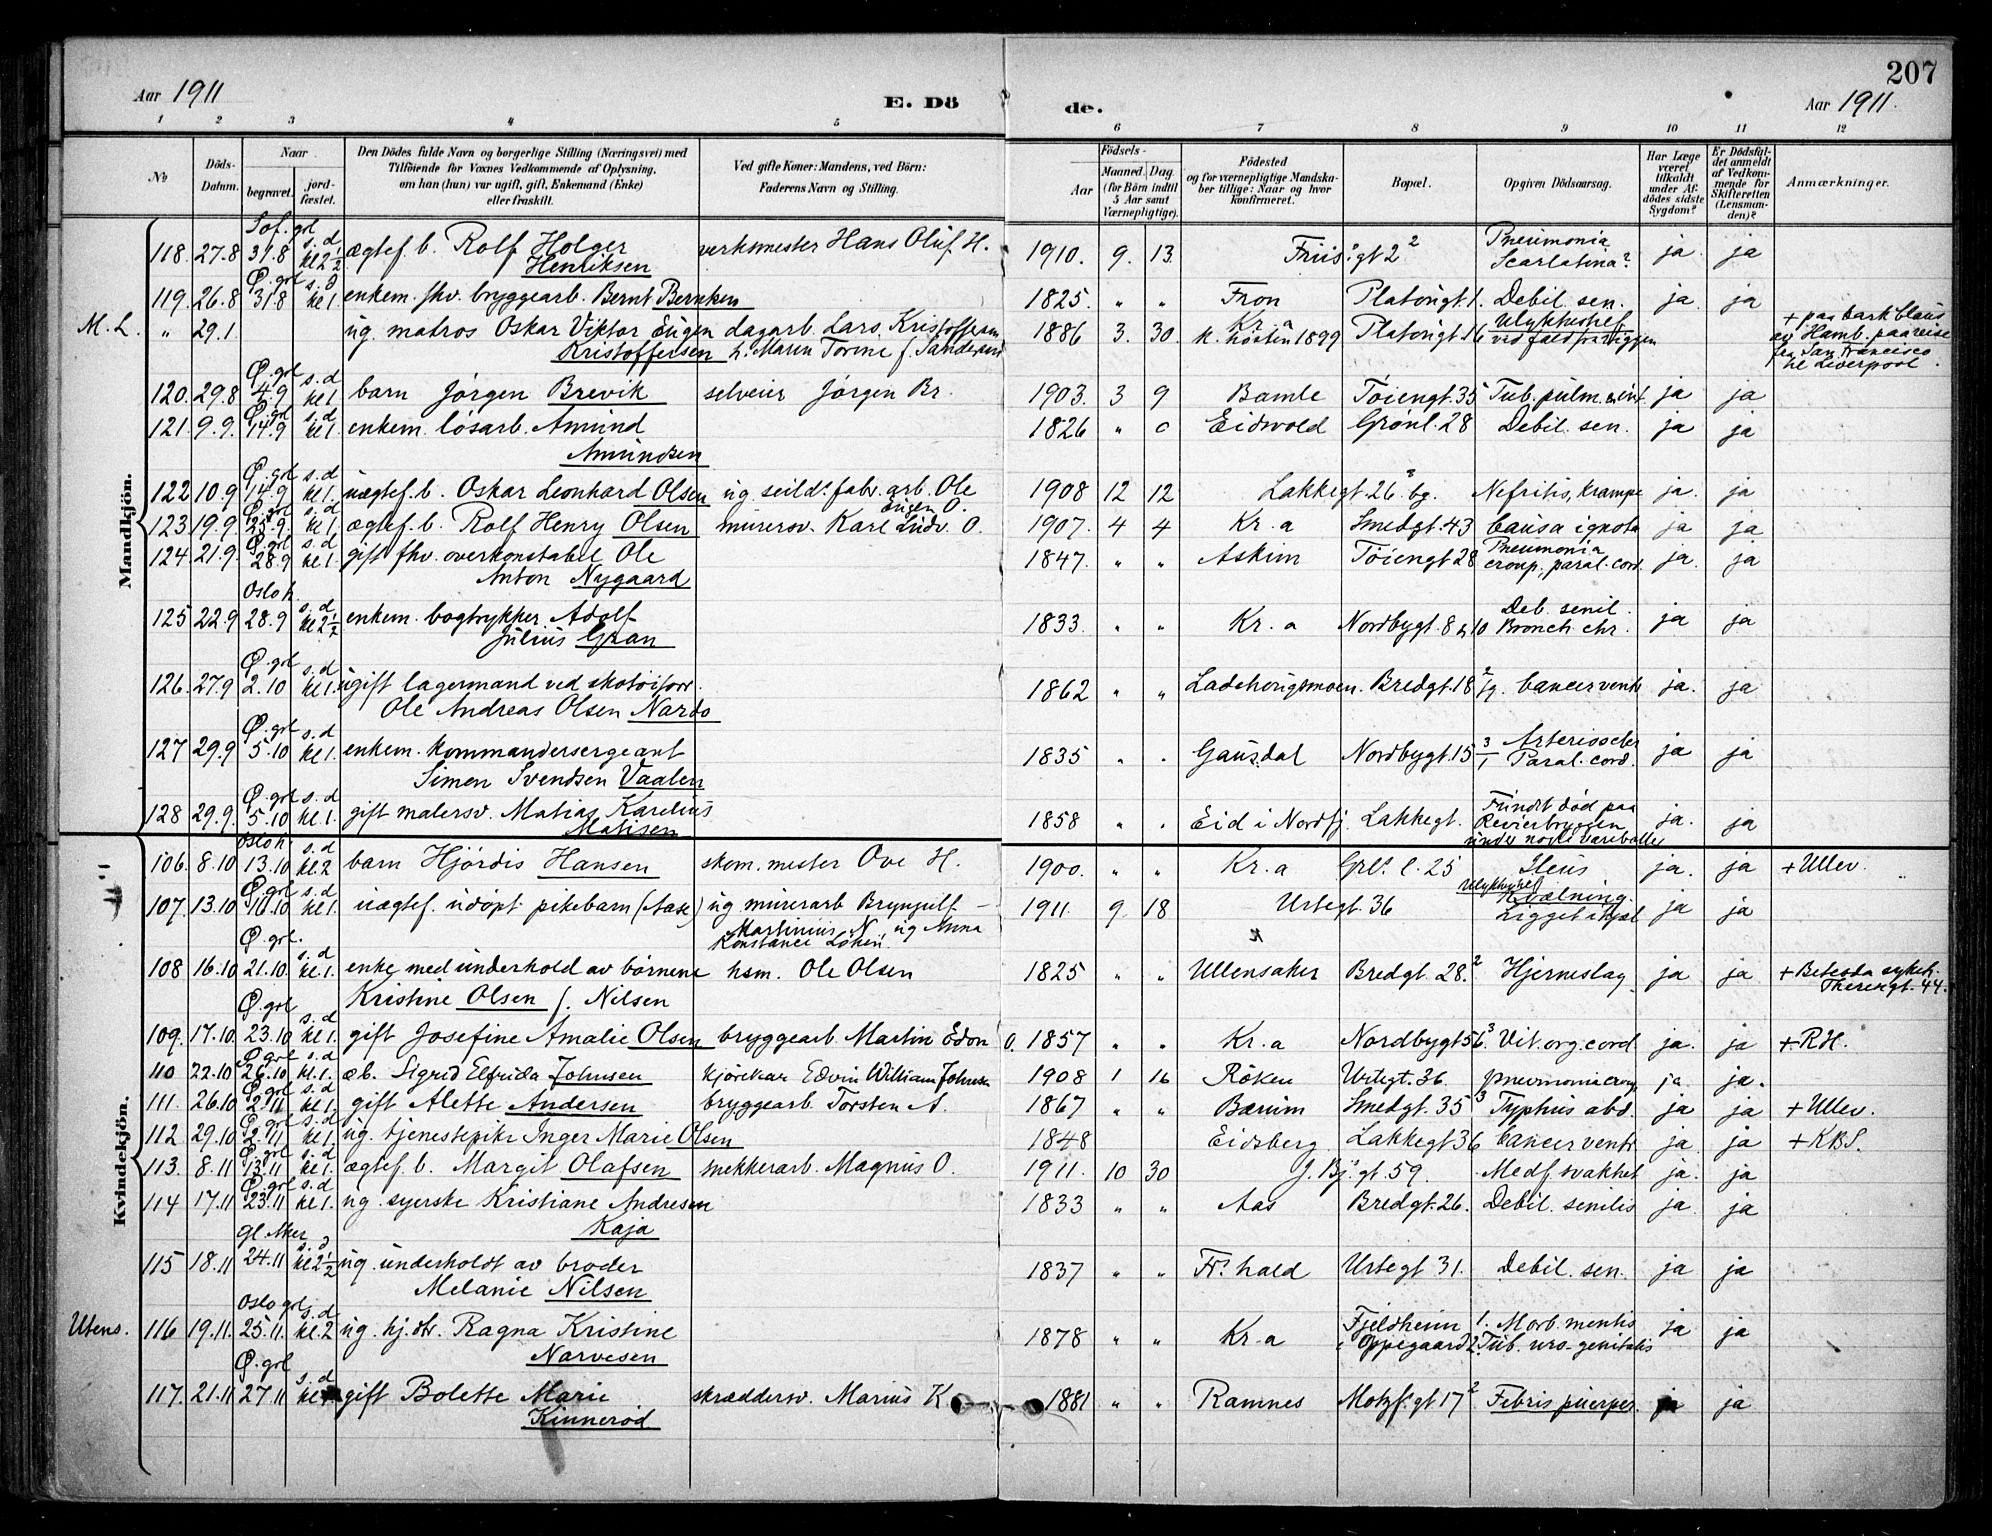 207
Aar 1911
E. Dö
de.
Aar 1911.
1 2 3 4 5 6 7 8 9 10 11 12
No
Döds-Datum.
Naar
begravet.
jord-fæstet.
Den Dödes fulde Navn og borgerlige Stilling (Næringsvei) med
Tilföiende for Voxnes Vedkommende af Oplysning,
om han (hun) var ugift, gift, Enkemand (Enke)
eller fraskilt.
Ved gifte Koner: Mandens, ved Börn:
Faderens Navn og Stilling.
Födsels-
Aar
Maaned. Dag.
(for Börn indtil
5 Aar samt
Værnepligtige).
Födested
og for værnepligtige Mandskaber tillige: Naar og hvor
konfirmeret.
Bopæl.
Opgiven Dödsaarsag.
Har Læge
været
tilkaldt
under Afdödes sidste
Sygdom?
Er Dödsfaldet anmeldt
af Vedkommende for
Skifteretten
(Lensmanden)?
Anmærkninger.
Mandkjön.
Sof. grl s. d
118. 27.8 31.8 kl 2 1/2 ægtef. b. Rolf Holger verksmester Hans Oluf H. 1910. 9. 13. Friisgt 2 2 Pneumonia ja ja
Henriksen Scarlatina?
Ø. grl s. d
119. 26.8 31.8 kl 1. enkem. fhv. bryggearb. Bernt Berntsen 1825. " " Fron Platousgt 1. Debil. sen. ja ja
M. L. " 29.1. ug. matros Oskar Viktor Eugen dagarb. Lars Kristoffersen 1886 3. 30. Kr. a Platousgt. 16 Ulykkestilf. + paa bark Claus
Kristoffersen h. Maren Torine f. Sandersen k. høsten 1899 ved fald fra riggen av Hamb. paa reise
fra San Francisco
til Liverpool.
Ø. grl s. d
120. 29.8 4.9 kl 1. barn Jørgen Brevik selveier Jørgen Br. 1903. 3 9 Bamle Tøiengt. 35 Tub. pulm. & int. ja ja
Ø. grl s. d
121. 9.9. 14.9 kl 1. enkem. løsarb. Amund 1826 " " Eidsvold Grønl. 28 Debil. sen. ja ja
Amundsen
Ø. grl s. d
122 10.9 14.9 kl 1. uægtef. b. Oskar Leonhard Olsen ug. seildsfabr. arb. Ole 1908 12 12 Lakkegt. 26 3 bg. Nefritis, krampe ja. ja
Eugen O.
Ø. grl s. d
123 19.9 25.9 kl 1 ægtef. b. Rolf Henry Olsen murersv. Karl Ludv. O. 1907. 4 4 Kr. a Smedgt. 43 Causa ignota ja ja
Ø. grl s. d
124 21.9. 28.9 kl 1. gift fhv. overkonstabel Ole 1847. " " Askim Tøiengt 28 Pneumonia ja. ja
Anton Nygaard croup., paral. cord.
Oslo k. s. d
125 22.9 28.9 kl 2 1/2 enkem. bogtrykker Adolf 1833. " " Kr. a Nordbygt. 8 & 10 Deb. senil. ja ja
Julius Gran Bronch. chr.
Ø. grl s. d
126. 27.9 2.10 kl 1. ugift lagermand ved skotøiforr. 1862 " " Ladehougsmoen. Bredgt. 18 2/g. Cancer ventr ja. ja
Ole Andreas Olsen Nardo
Ø. grl s. d
127 29.9 5.10 kl 1. enkem. kommandersergeant 1835 " " Gausdal Nordbygt. 15 3/1 Arterioscler ja ja
Simen Svendsen Vaalen Paral. cord.
Ø. grl s. d
128 29.9. 5.10 kl. 1. gift malersv. Matias Karelius 1858 " " Eid i Nordfj. Lakkegt. Fundet død paa ja. ja
Matisen Revierbryggen
under nogle vareballer
Kvindekjön.
Oslo k. s. d
106. 8.10 13.10 kl. 2 barn Hjördis Hansen skom. mester Ove H. 1900. " " Kr. a Grl.s l. 25 Ileus ja. ja + Ullev.
Ø. grl s. d
107. 13.10 16.10 kl 1. uægtef. udøpt pikebarn (Aase) ug murerarb Brynjulf 1911. 9. 18 Urtegt. 36 Ulykkestilf. Kvælning. ja ja
Martinius N., ug Anna Ligget ihjel
Konstance Løken
Ø. grl. s. d
108 16.10 21.10. kl. 1. enke med underhold av børnene hsm. Ole Olsen 1825 " " Ullensaker Bredgt. 28. 2 Hjerneslag ja ja + Betesda sykeh.
Kristine Olsen f. Nilsen Theresgt. 44.
Ø. grl s. d
109. 17.10 23.10 kl 1. gift Josefine Amalie Olsen bryggearb. Martin Edon O. 1857 " " Kr. a Nordbygt 56. 3 Vit. org. cord ja. ja + RH.
Ø. grl s. d
110 22.10 26.10 kl. 1. æb. Sigrid Elfrida Johnsen kjørekar Edvin William Johnsen 1908 1 16 Röken Urtegt. 36. pneumonia croup ja ja.
Ø. grl s. d
111. 26.10 2.11 kl 1. gift Alette Andersen bryggearb. Torsten A. 1867 " " Bærum Smedgt. 35 3 Typhus abd. ja ja + Ullev.
Ø. grl s. d
112. 29.10 2.11 kl 1. ug. tjenestepike Inger Marie Olsen 1848 Eidsberg Lakkegt 36 Cancer ventr ja. ja + KBS.
Ø. grl s. d
113. 8.11 13.11 kl 1. ægtef. b. Margit Olafsen mekkerarb. Magnus O. 1911. 10 30 J. Bj.s gt 59. Medf. svakhet ja. ja
Ø. grl s. d
114 17.11 23.11 kl 1. ug. syerske Kristiane Andresen 1833 " " Aas Bredgt. 26. Debil. senilis ja ja
Kaja
Gl. Aker s. d
115 18.11 24.11 kl 2 1/2 ug. underholdt av broder 1837 " " Fr. hald Urtegt 31. Debil. sen. ja ja
Melanie Nilsen
Oslo grl s. d
Utens. 116 19.11 25.11. kl. 2 ug. hj. dtr. Ragna Kristine 1878 " " Kr. a Fjeldheim 1. Morb. mentis ja ja
Narvesen i Oppegaard 2. Tub. uro-genitalis
Ø. grl s. d
117. 21.11 27.11 kl gift Bolette Marie skræddersv. Marius K 1881 " " Ramnes Motzf. gt 17 2 Febris puerper. ja ja
Kinnerød